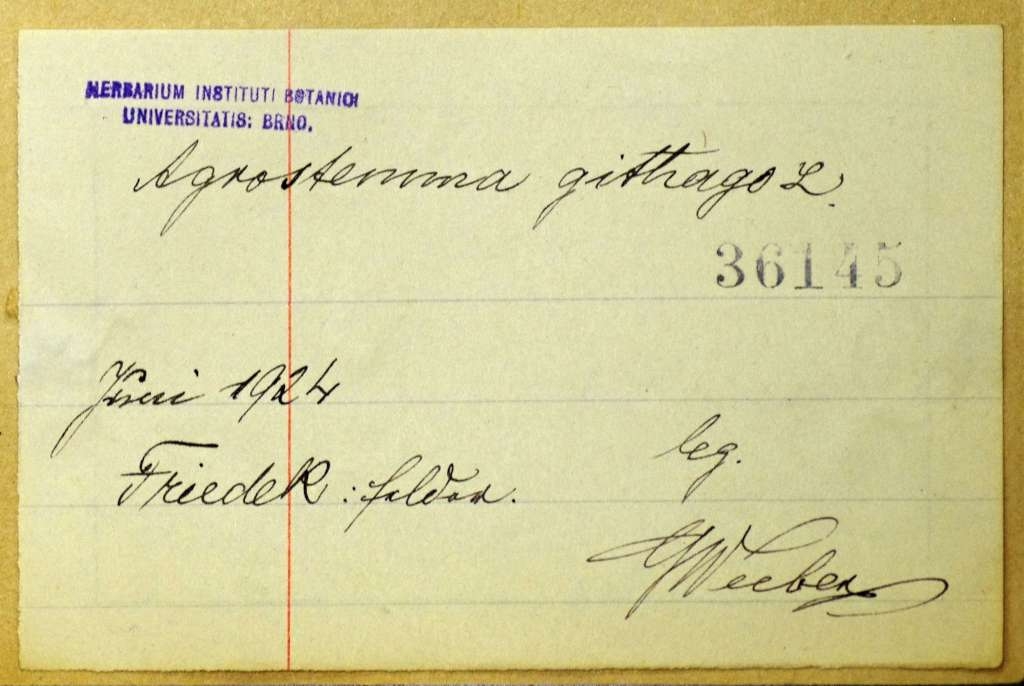 HERBARIUM INSTITUTI BOTANICI
UNIVERSITATIS: BRNO.
Agrostemma githago L.
36145
Juni 1924
Friedek: felder.
leg.
GWeeber